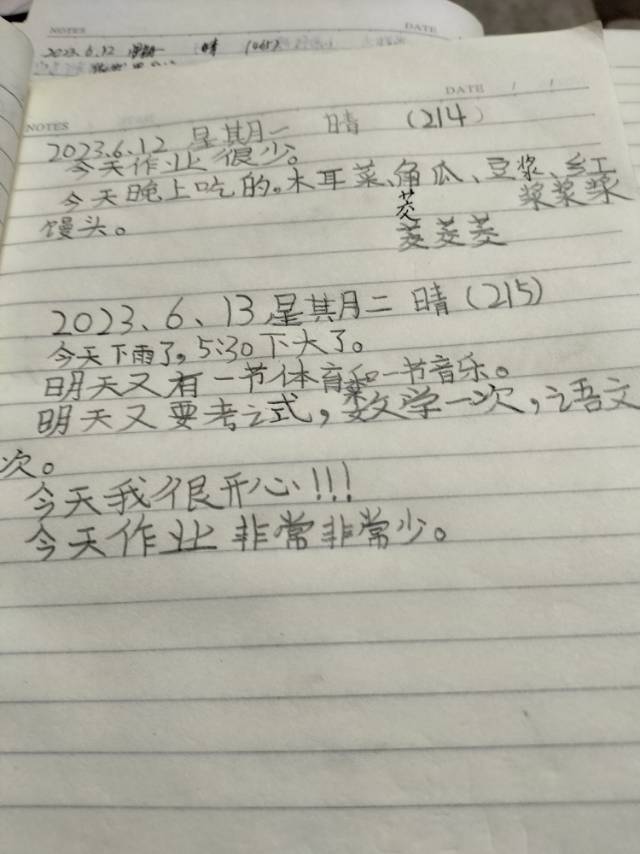 NOTES DATE
2023.6.12 晴
NOTES DATE / /
2023.6.12 星期一 晴 (214)
今天作业很少。
今天晚上吃的。木耳菜、角瓜、豆浆、乡工
茭 浆浆浆
馒头。
菱菱菱
2023、6、13星期二 晴(215)
今天下雨了,5:30下大了。
明天又有一节体育和一节音乐。
明天又要考之式,数学一次,语文
次。
今天我很开心!!!
今天作业非常非常少。